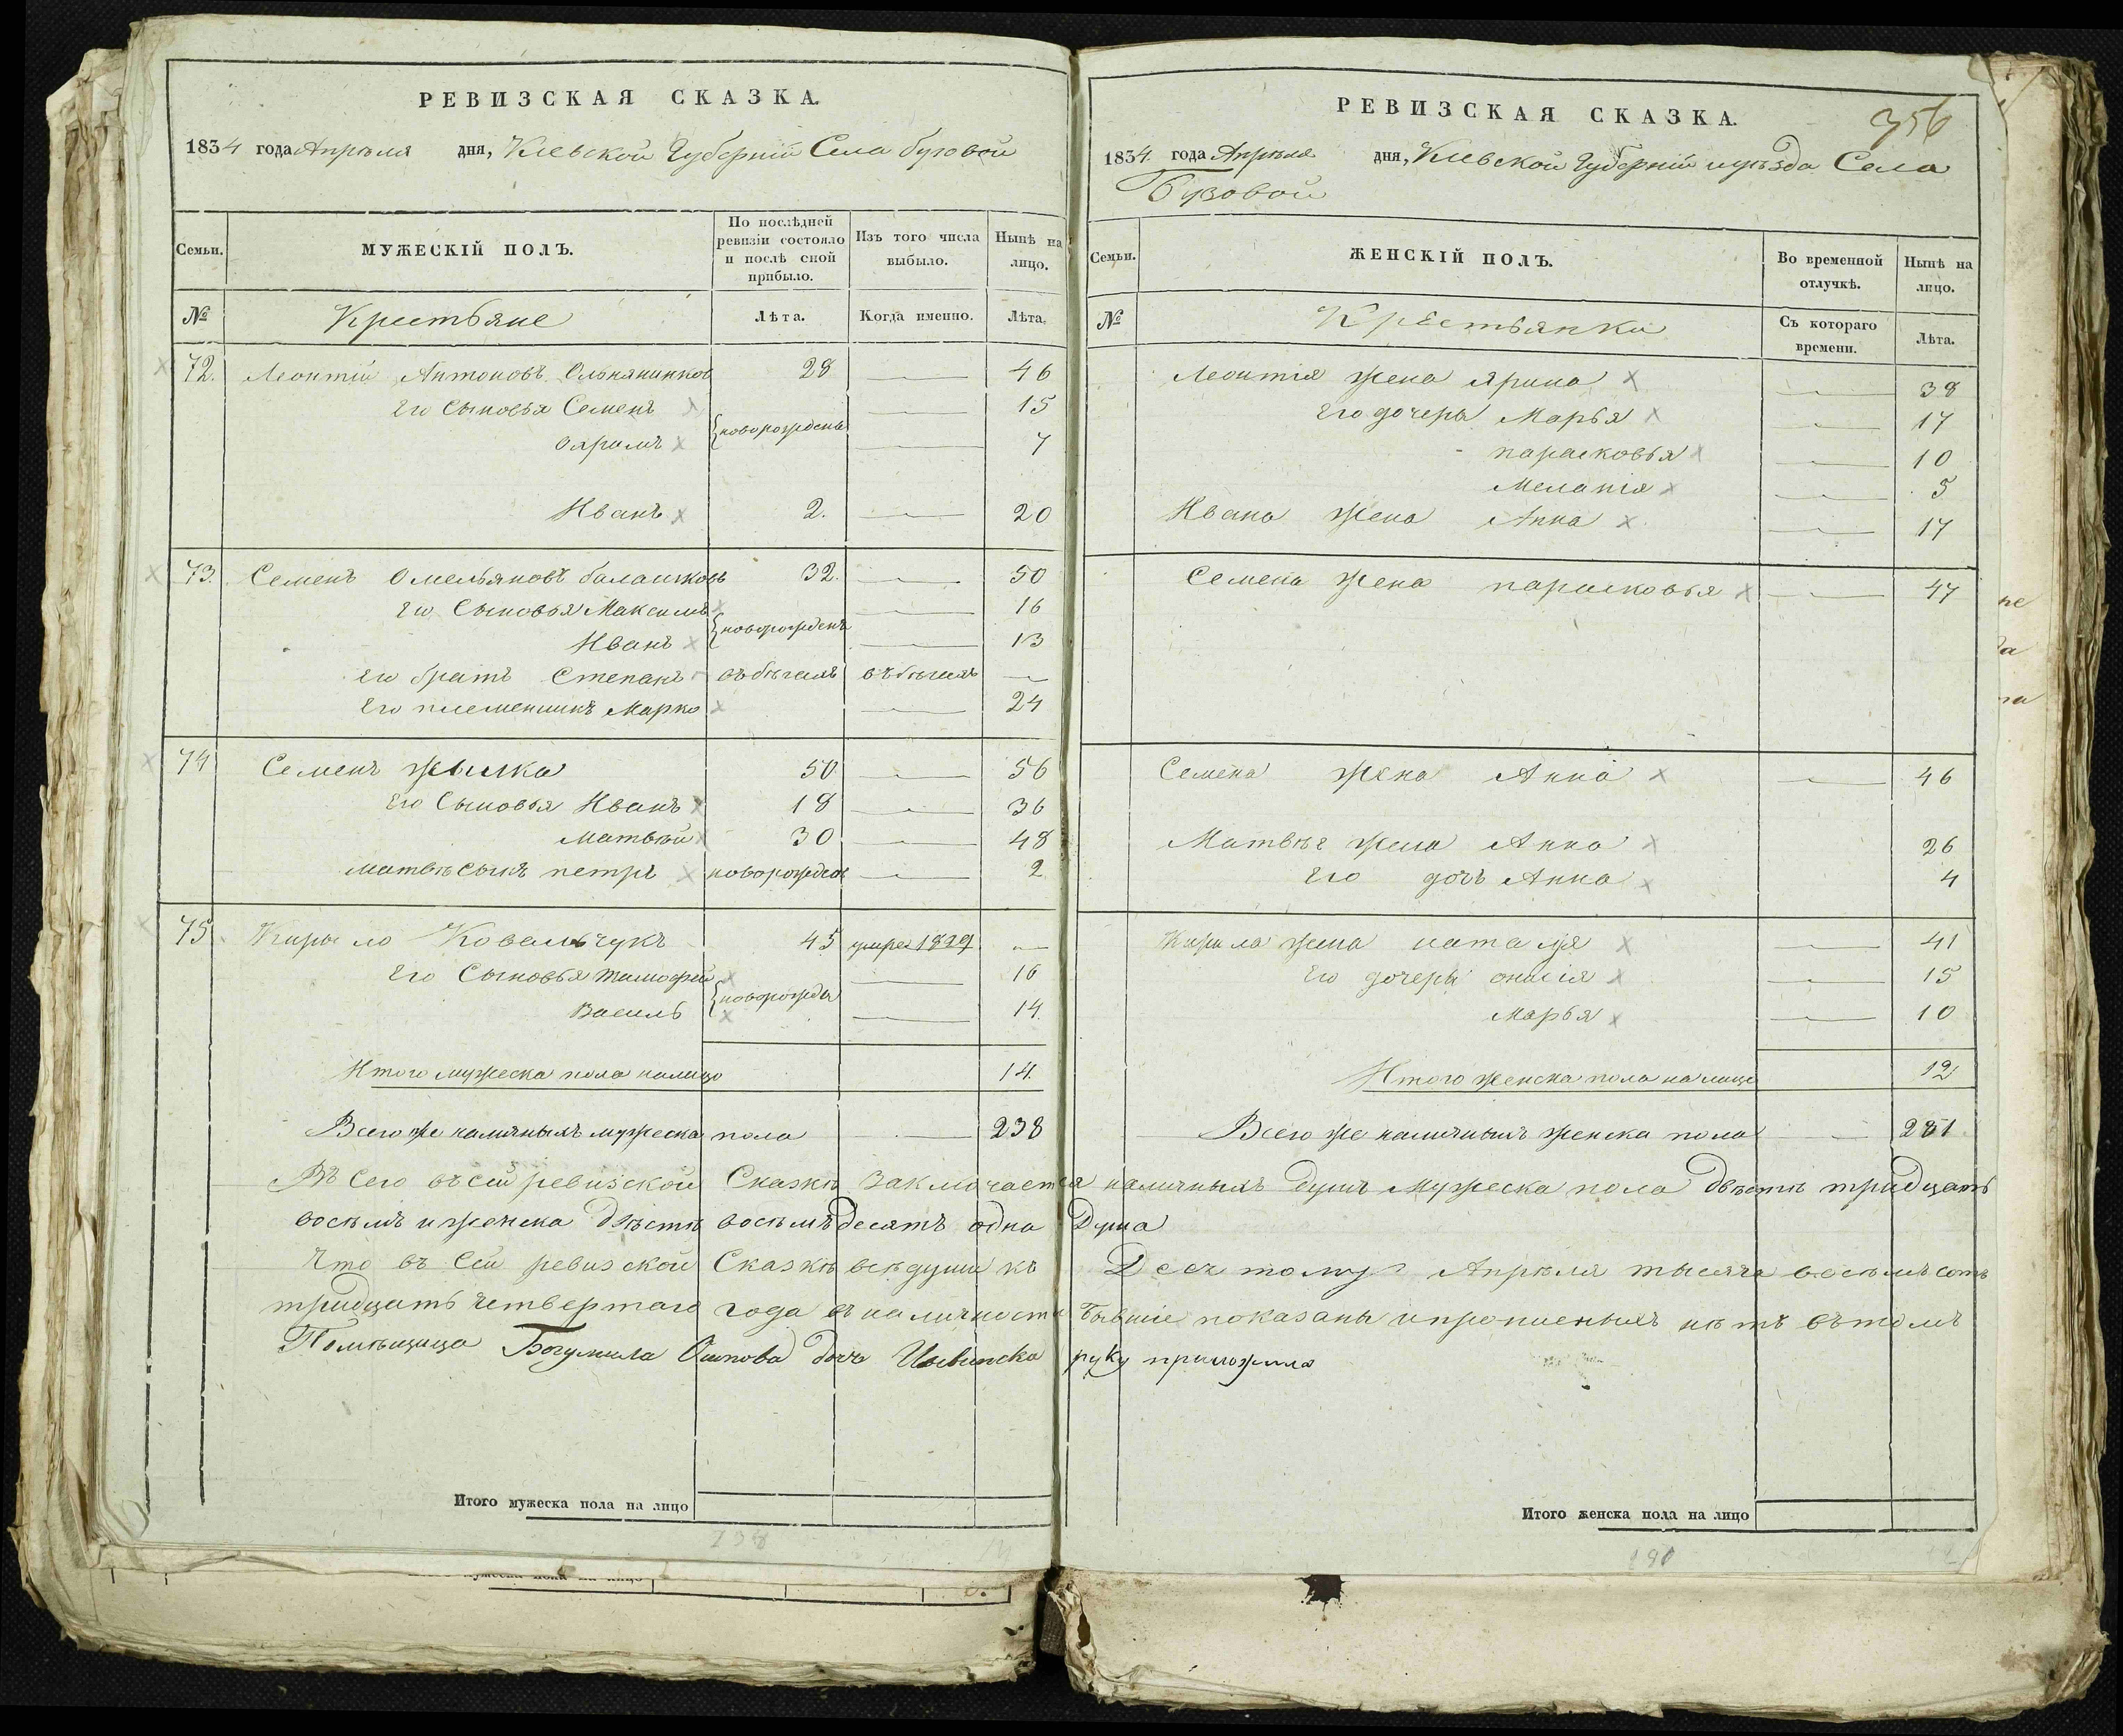 РЕВИЗСКАЯ СКАЗКА.
1834 года Апреля дня, Киевской Губерніи Села бузовой
Семьи. МУЖЕСКІЙ ПОЛЪ. По послѣдней ревизіи состояло и послѣ оной прибыло. Изъ того числа выбыло. Нынѣ на лицо.
№ Крестьяне Лѣта. Когда именно. Лѣта.
72. Леонтій Антоновъ 28 46
Его Сыновья Семенъ 15
новорождены
7
Иванъ 2. 20
73. Семенъ Омельяновъ 32. 50
Его Сыновья Максимъ 16
новорождены
Иванъ 13
Его братъ Степанъ въ бѣгахъ въ бѣгахъ
Его племенникъ Марко 24
74 Семенъ 50 56
Его Сыновья Иванъ 18 36
Матвѣй 30 48
Матвѣ сынъ петръ новорожден 2
75 Кирило Ковальчукъ 45 умре 1829
Его Сыновья тимофей 16
новорожды
Василь 14.
Итого мужеска пола налицо 14.
Всего же наличныхъ мужеска пола 238
РЕВИЗСКАЯ СКАЗКА.
356
1834 года Апреля дня, Киевской Губерніи и уѣзда Села
Бузовой
Семьи. ЖЕНСКІЙ ПОЛЪ. Во временной отлучкѣ. Нынѣ на лицо.
№ Крестьянки Съ котораго времени. Лѣта.
Леонтія жена Ярина 38
Его дочеры Марья 17
парасковья 10
Меланія 5
Ивана жена Анна 17
Семена жена парасковья 47
Семена жена Анна 46
Матвѣя жена Анна 26
Его дочь Анна 4
Кирила жена наталя 41
Его дочеры 15
Марья 10
Итого женска пола на лицо 12
Всего же наличныхъ женска пола 281
Въ Сего въ сей ревизской Сказкѣ заключается наличныхъ душъ мужеска пола двѣстѣ тридцать
восѣмъ и женска двѣстѣ восѣмъдесятъ одна душа
Что въ Сей ревизской Сказкѣ всѣ души къ Апрѣля тысяча восѣмъ сотъ
тридцать четвертаго года въ наличности бывшіе показаны и прописныхъ нѣтъ вътомъ
Помѣщица Богумила дочь руку приложила
Итого мужеска пола на лицо
Итого женска пола на лицо
238